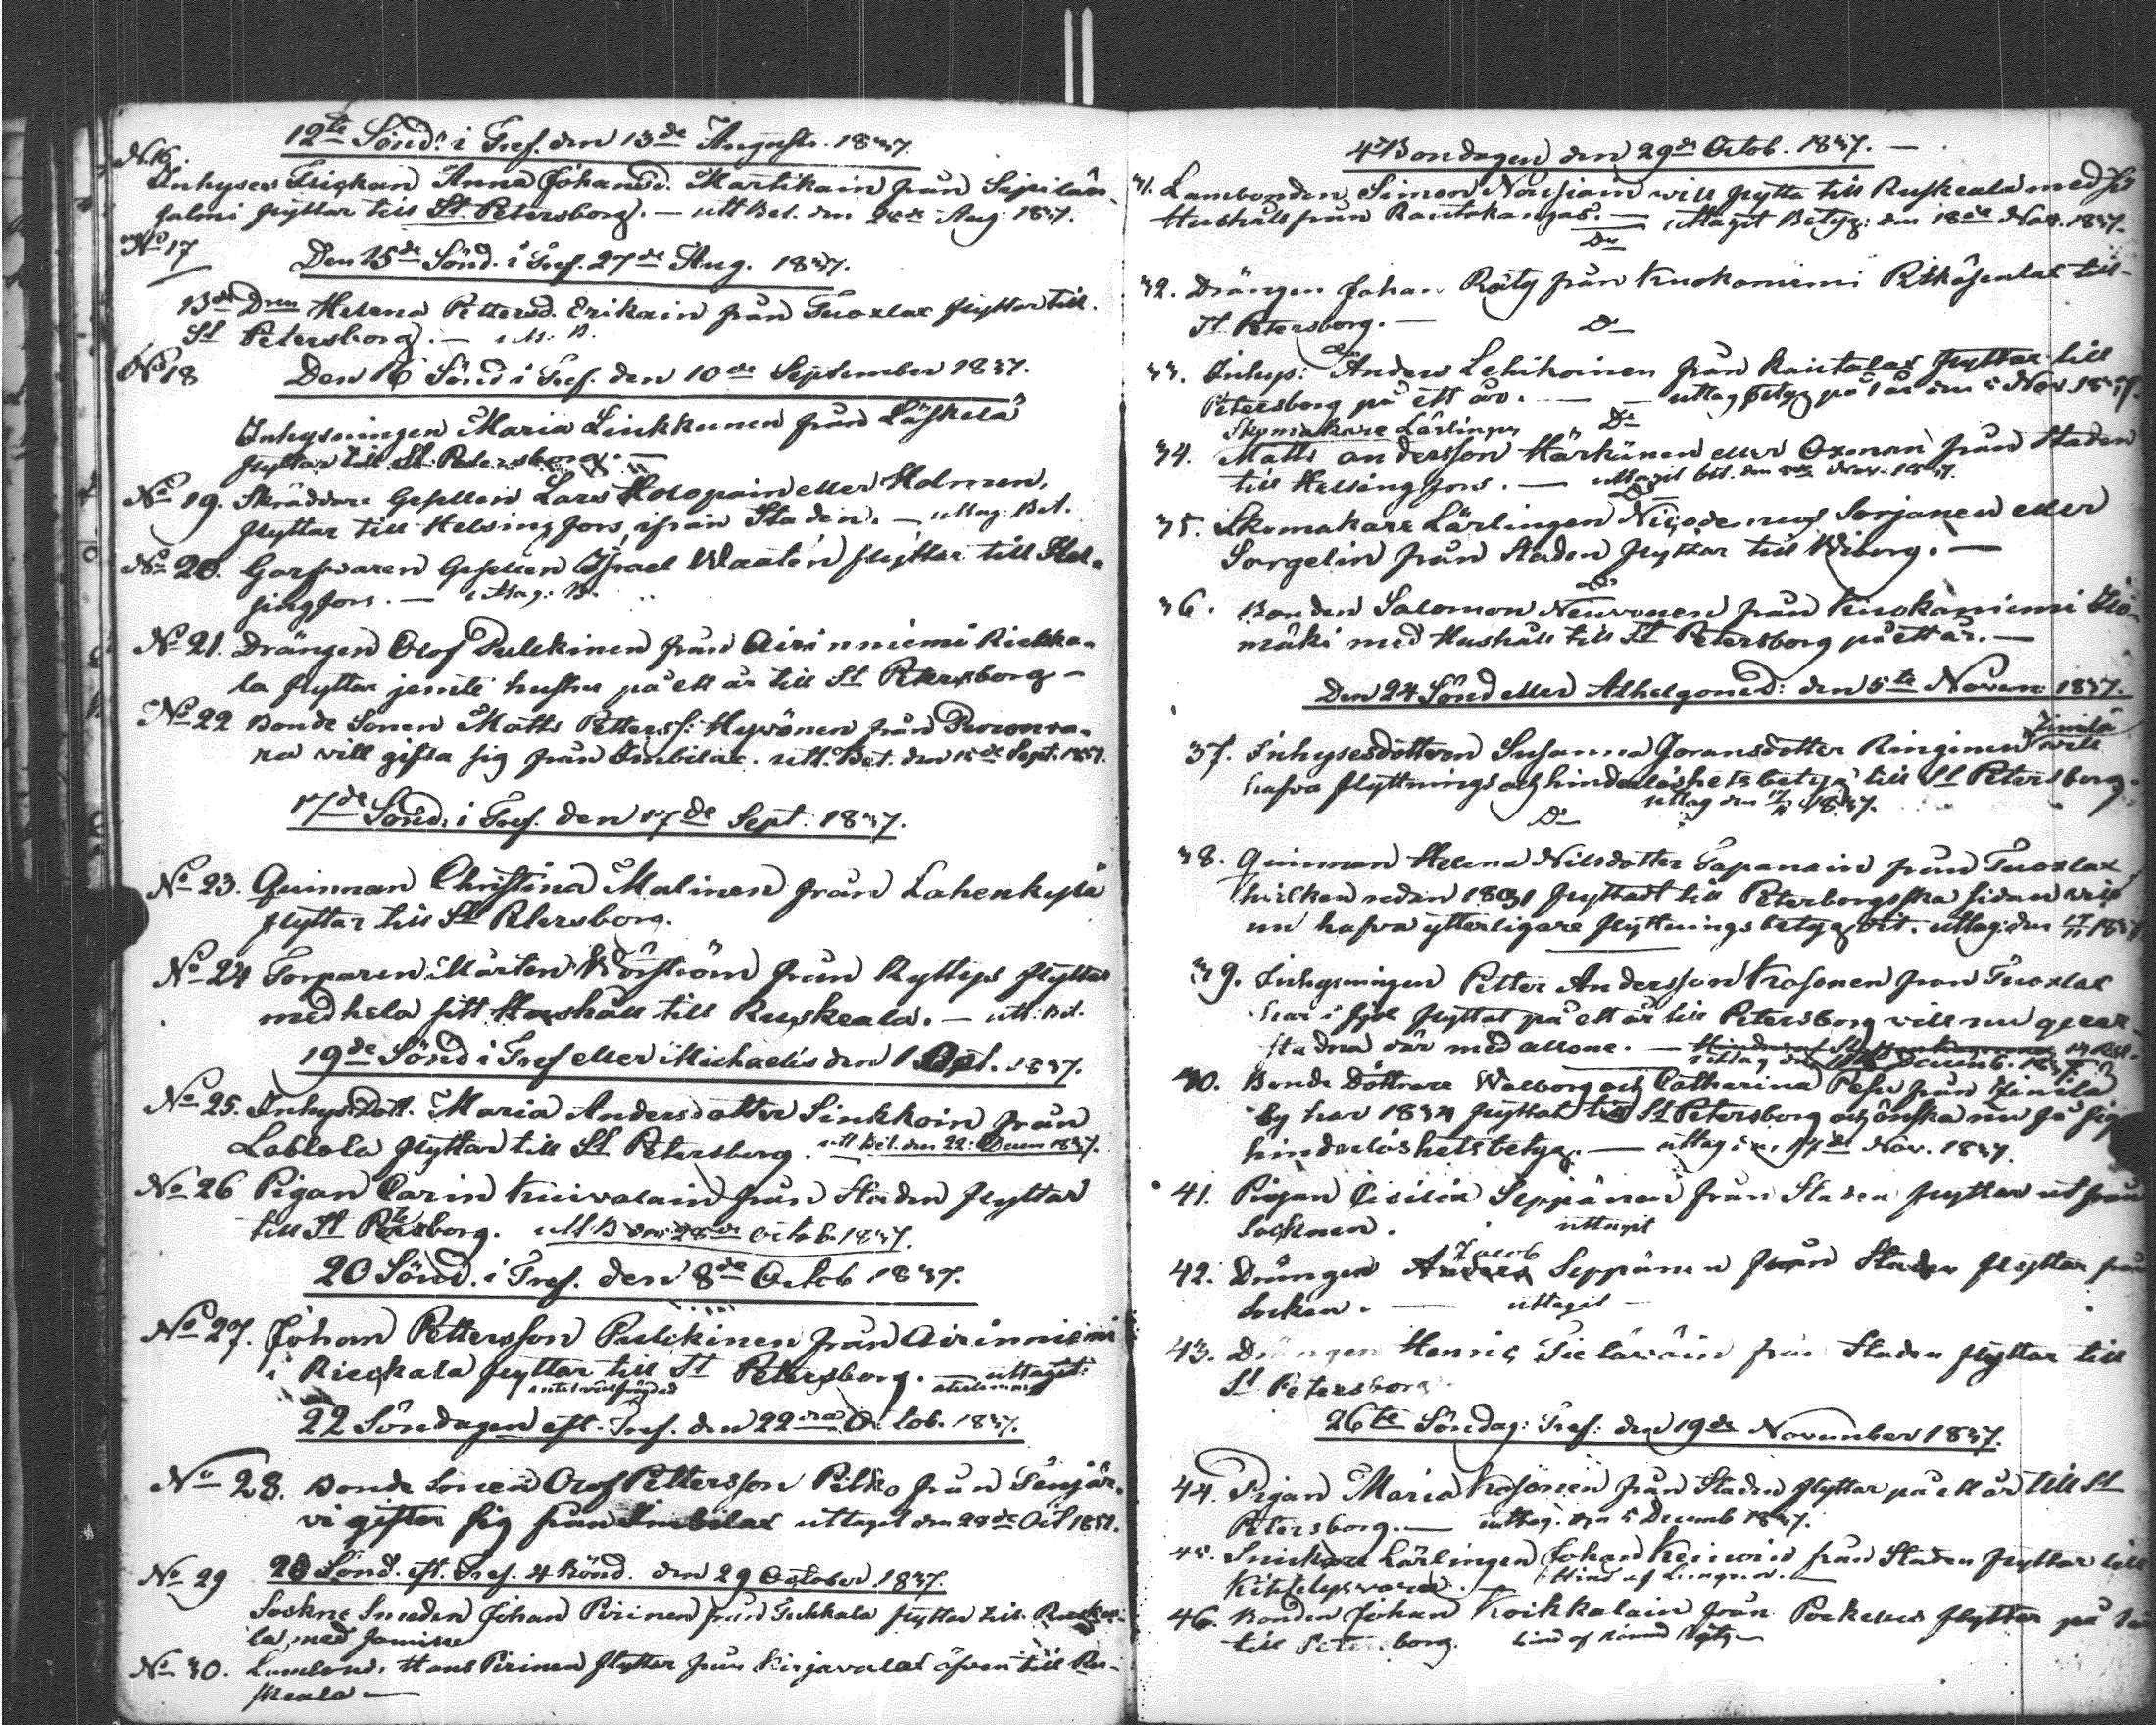 12te Sönd: i Tref. den 13de Augusti. 1837.
N. 16.
Inhyses Flickan Anna Johansd. Martikain från Sipilän
salmi flyttar till St Petersborg. — utt Bet. den 28de Aug: 1837.
No 17
Den 15de Sönd. i Tref. 27de Aug. 1837.
Helena Pettersd. Erikain från Tuoxlax flyttar till
St Petersborg. —
No 18
Den 16 Sönd i Tref. den 10de September 1837.
Inhysningen Maria Linkkunen från Läskelä
flyttar till St. Petersborg. —
No 19. Skräddare Gesellen Lars Holopain eller Holmen,
flyttar till Helsingfors, ifrån Staden. — uttag: Bet.
No 20. Garfvaren Gesellen Israel Waaten flyttar till Hel-
singfors. — uttag: B.
No 21. Drängen Olof Pulckinen från Airinniemi Riekka-
la flyttar jemte hustru på ett år till St Petersborg —
No 22 Bonde Sonen Matts Petterss: Hyvönen från
ra vill gifta sig från Imbilax. utt. Bet. den 15de Sept. 1837.
17de Sönd. i Tref. den 17de Sept. 1837.
No 23. Quinnan Christina Malinen från Lahenkylä
flyttar till St Petersborg.
No 24 Torparen Mårten från Kyttys flyttar
med hela sitt Hushåll till Ruskeala. — utt: Bet.
19de Sönd i Tref eller Michaelis den 1 Oct. 1837.
No 25. Inhys Dott. Maria Andersdotter Sinkkoin från
Lablola flyttar till St Petersborg. utt. Bet. den 22: Decem 1837.
No 26 Pigan Carin Kuivalain från Staden flyttar
till St Petersborg. utt B den 28de Octob. 1837.
20 Sönd. i Tref. den 8de Octob 1837.
No 27. Johan Pettersson Pulckinen från Airinniemi
i Rieckala flyttar till St Petersborg. — uttaget:
22 Söndagen eft. Tref. den 22dra Octob. 1837.
No 28. Bonde Sonen Olof Pettersson Pitko från Tenjär-
vi gifter sig från Imbilax uttaget den 29de Oct 1837.
No 29 Sönd. eft. Tref. 4 Bönd. den 29 October 1837.
Sockne Smeden Johan Pirinen från Tuhkala flyttar till Ruskea-
la med famille
No 30. Lambond. Hans Pirinen flyttar från Kirjavalax äfven till Ru-
skeala —
4 Böndagen den 29de Octob. 1837. —
31. Lambonden Simon Nousiain will flytta till Ruskeala med sitt
Hushåll från Rautakangas. — uttaget Betyg: den 18de Nov. 1837.
Do
32. Drängen Johan Räty från Kuokaniemi till
St Petersborg. — Do
33. Inhys: Anders Lehikoinen från Rautalax flyttar till
Petersborg på ett år. — uttag betyg på 1 år den 5 Nov 1837.
Skomakare Lärlingen Do
34. Matts Andersson Härkönen eller Oxman från Staden
till Helsingfors. — uttaget bet. den Nov. 1837.
35. Skomakare Lärlingen Nicodemus Sorjanen eller
Sorgelin från Staden flyttar till Wiborg. —
Do
36. Bonden Salomon Neuvonen från Kuokaniemi
mäki med Hushåll till St Petersborg på ett år. —
Den 24 Sönd eller Alhelgoned: den 5te Novem: 1837.
37. Inhysesdottren Susanna Joransdotter Ringinen will
hafva flyttnings och hinderlöshets betyg till St Petersborg.
uttag den 17/11 1837.
Do
38. Quinnan Helena Nilsdotter Tapanain från Tuoxlax,
hvilken redan 1831 flyttadt till Petersborgska sidan will
nu hafva ytterligare flyttningsbetyg dit. uttag: den 17/11 1837
39. Inhysningen Petter Andersson Krosonen från Tuoxlax
har i fjol flyttat på ett år till Petersborg vill nu qvar-
stadna där med allone. —
uttag den Decemb. 1837.
40. Bonde Döttrare Walborg och Catharina från Jänilä
by har 1834 flyttat till St Petersborg och önska nu få sig
hinderlöshetsbetyg. — uttag den 17de Nov. 1837.
41. Pigan Cicilia Seppänen från Staden flyttar ut från
Socknen. uttagit
42. Drängen Jacob Seppänen från Staden flyttar från
Socken. — uttaget —
43. Drängen Henric Tietäväin från Staden flyttar till
St Petersborg.
26te Söndag: Tref: den 19de November 1837.
44. Pigan Maria Krosonen från Staden flyttar på ett år till St
Petersborg. — uttag. den 5 Decemb 1837.
45. Snickare Lärlingen Johan från Staden flyttar till
Kihtelysvara. —
46. Bonden Johan Koikkalain från flyttar på
till Petersborg.